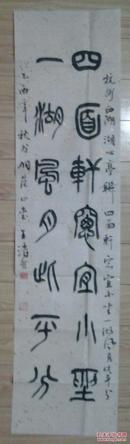 杭州西湖湖心亭聯四面軒窗宜小坐一湖風月此平分
四面軒窗宜小坐
一湖風月此平分
乙酉年秋